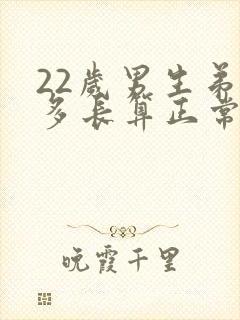 22岁男生弟
多长算正常
晚霞千里